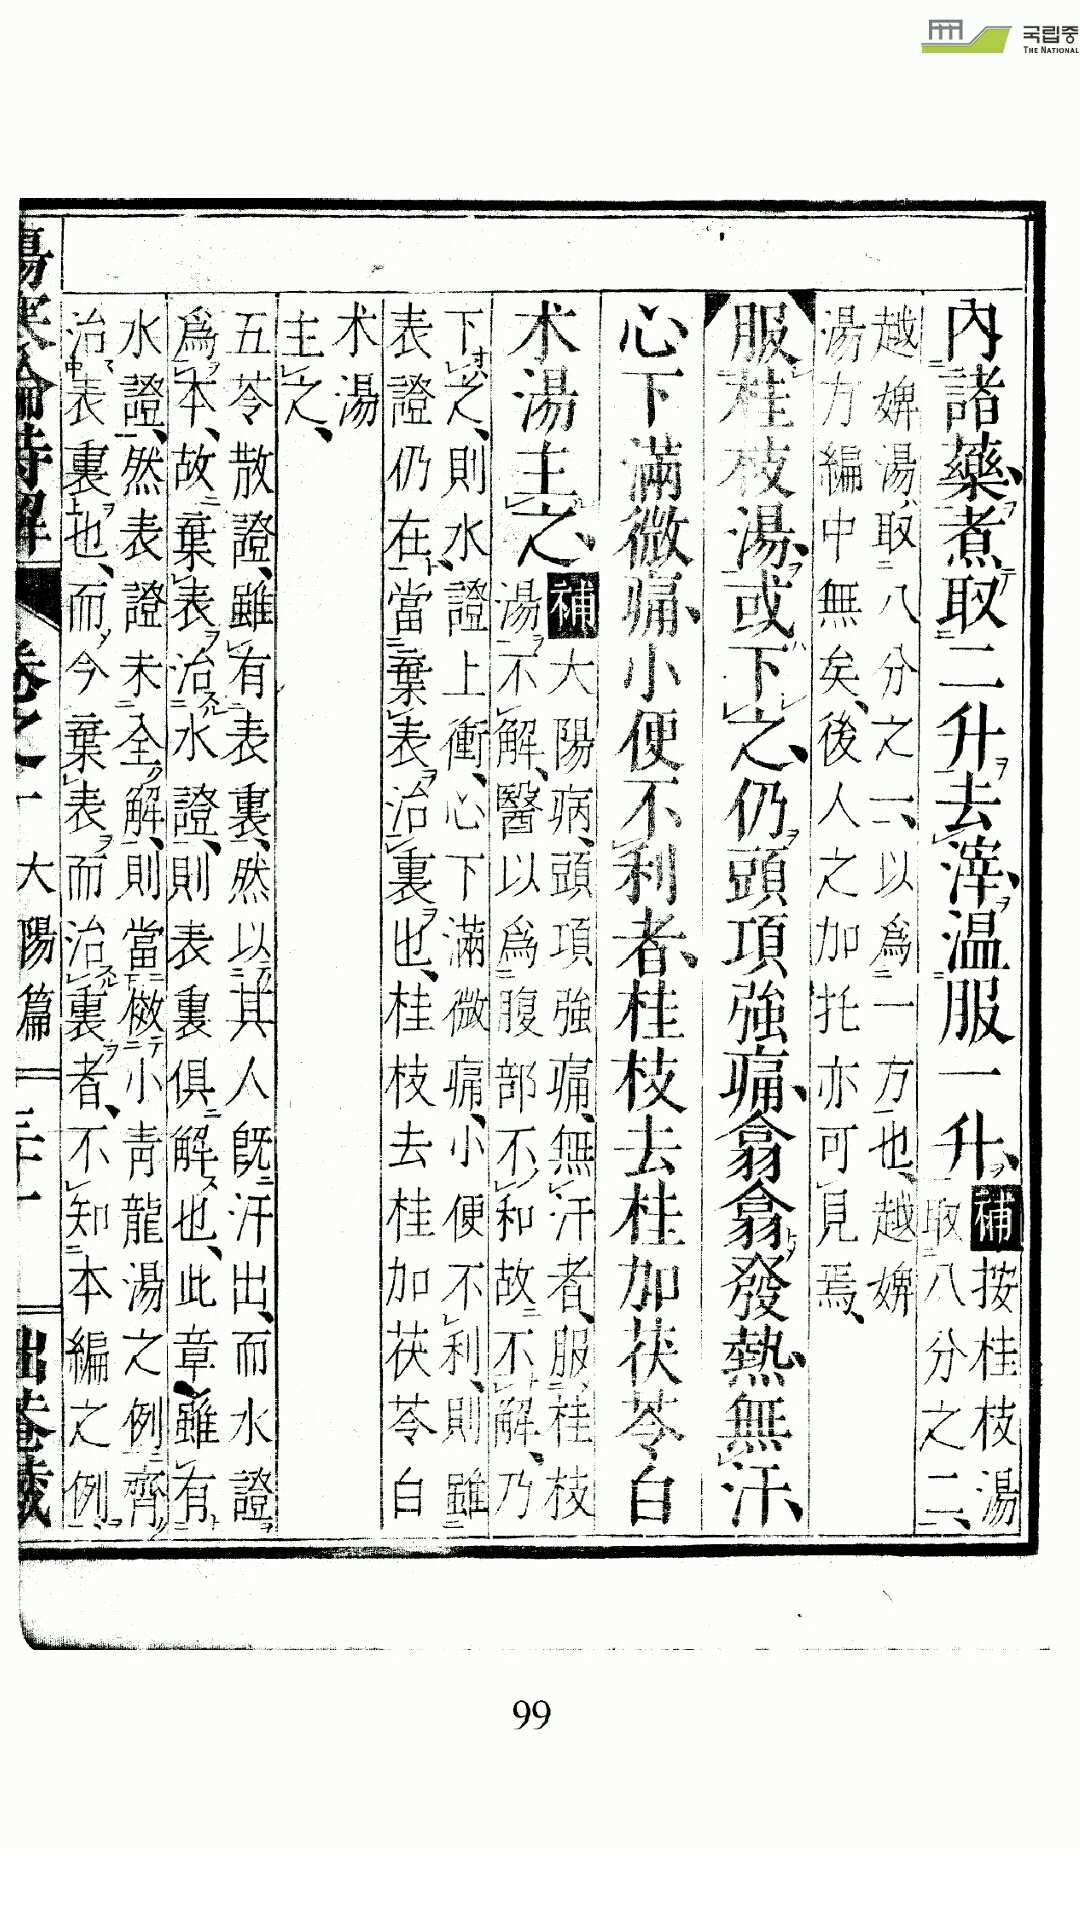 국립중
THE NATIONAL
內諸藥、煮取二升、去滓、溫服一升、補按桂枝湯
取八分之二、
越婢湯、取八分之一、以爲一方也、越婢
湯方編中無矣、後人之加托亦可見焉、
服桂枝湯、或下之、仍頭項強痛、翕翕發熱、無汗、
心下滿微痛、小便不利者、桂枝去桂加茯苓白
朮湯主之、補大陽病、頭項強痛、無汗者、服桂枝
湯不解、醫以爲腹部不和故不解、乃
下之、則水證上衝、心下滿微痛、小便不利、則雖
表證仍在、當棄表治裏也、桂枝去桂加茯苓白
朮湯
主之、
五苓散證、雖有表裏、然以其人既汗出、而水證
爲本、故棄表治水證、則表裏俱解也、此章、雖有
水證、然表證未全解、則當倣小青龍湯之例齊
治表裏也、而今棄表而治裏者、不知本編之例、
傷寒論特解 卷之二 大陽篇
99